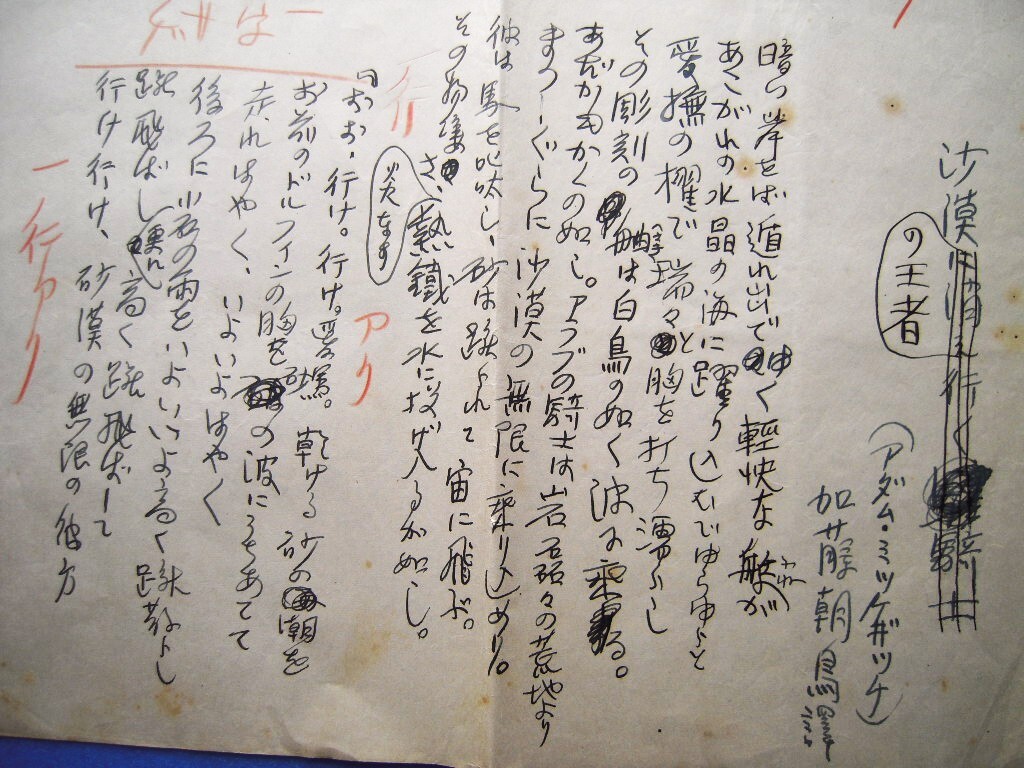 沙漠
の王者
(アダム・ミツケヰッチ)
加藤朝鳥
暗い岸をば遁れ出でゆく軽快な船が
あこがれの水晶の海に躍り込むでゆらゆらと
愛撫の櫂で瑞々と胸を打ち濡らし
その彫刻の は白鳥の如く波に乗る。
あだかもかくの如し。アラブの騎士は岩石磊々の荒地より
まつしぐらに沙漠の無限に乗り込めり。
彼は馬を叱咤し、砂は蹴られて宙に飛ぶ。
その物凄さ、熱鉄を水に投げ入るが如し。
炎なす
行
アク
『おお・行け。行け。 乾ける砂の潮を
お前のドルフィンの胸を の波にそあてて
走ればはやく、いよいよはやく
後ろに小石の雨をいよいよ高く蹴散らし
蹴飛ばし 高く蹴飛ばして
行け行け、砂漠の無限の彼方
一行アク